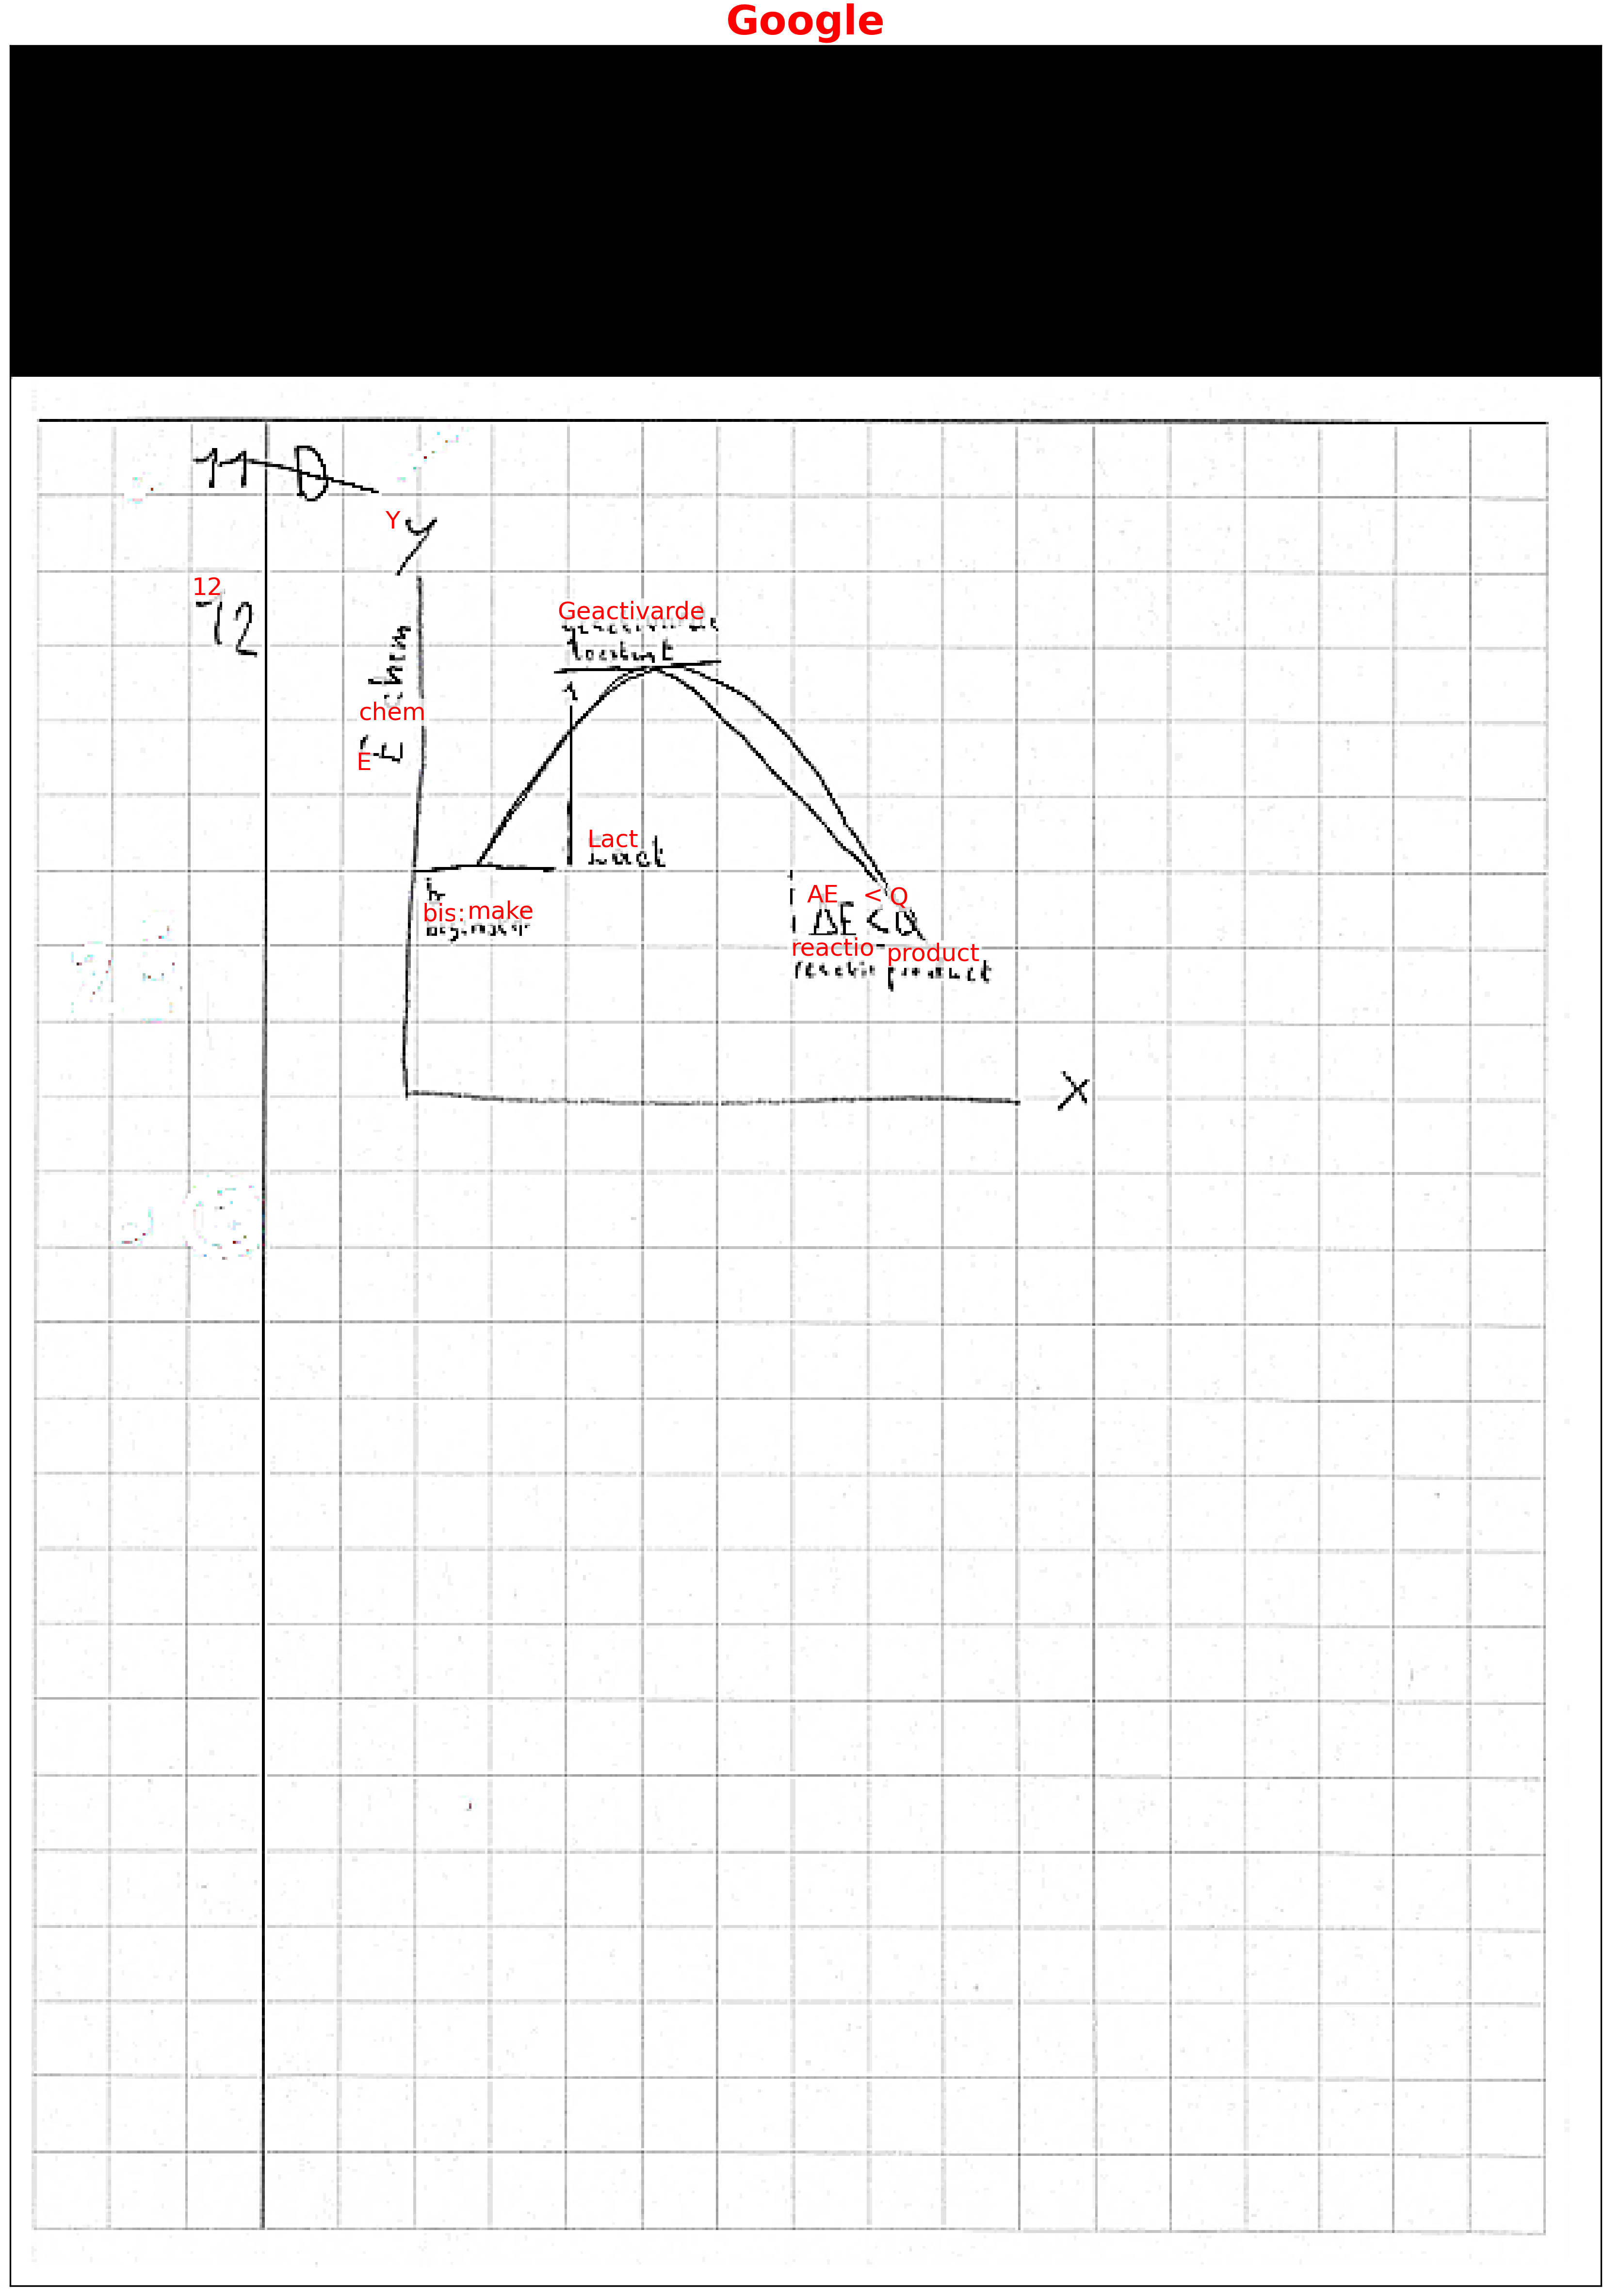 Google
11 D
Y y
12
12
Geactivarde
geactiveerde
toestand
E chem
chem
E
Lact
Eact
bis: make
AE < Q
ΔE < Q
reactio product
reactie product
X